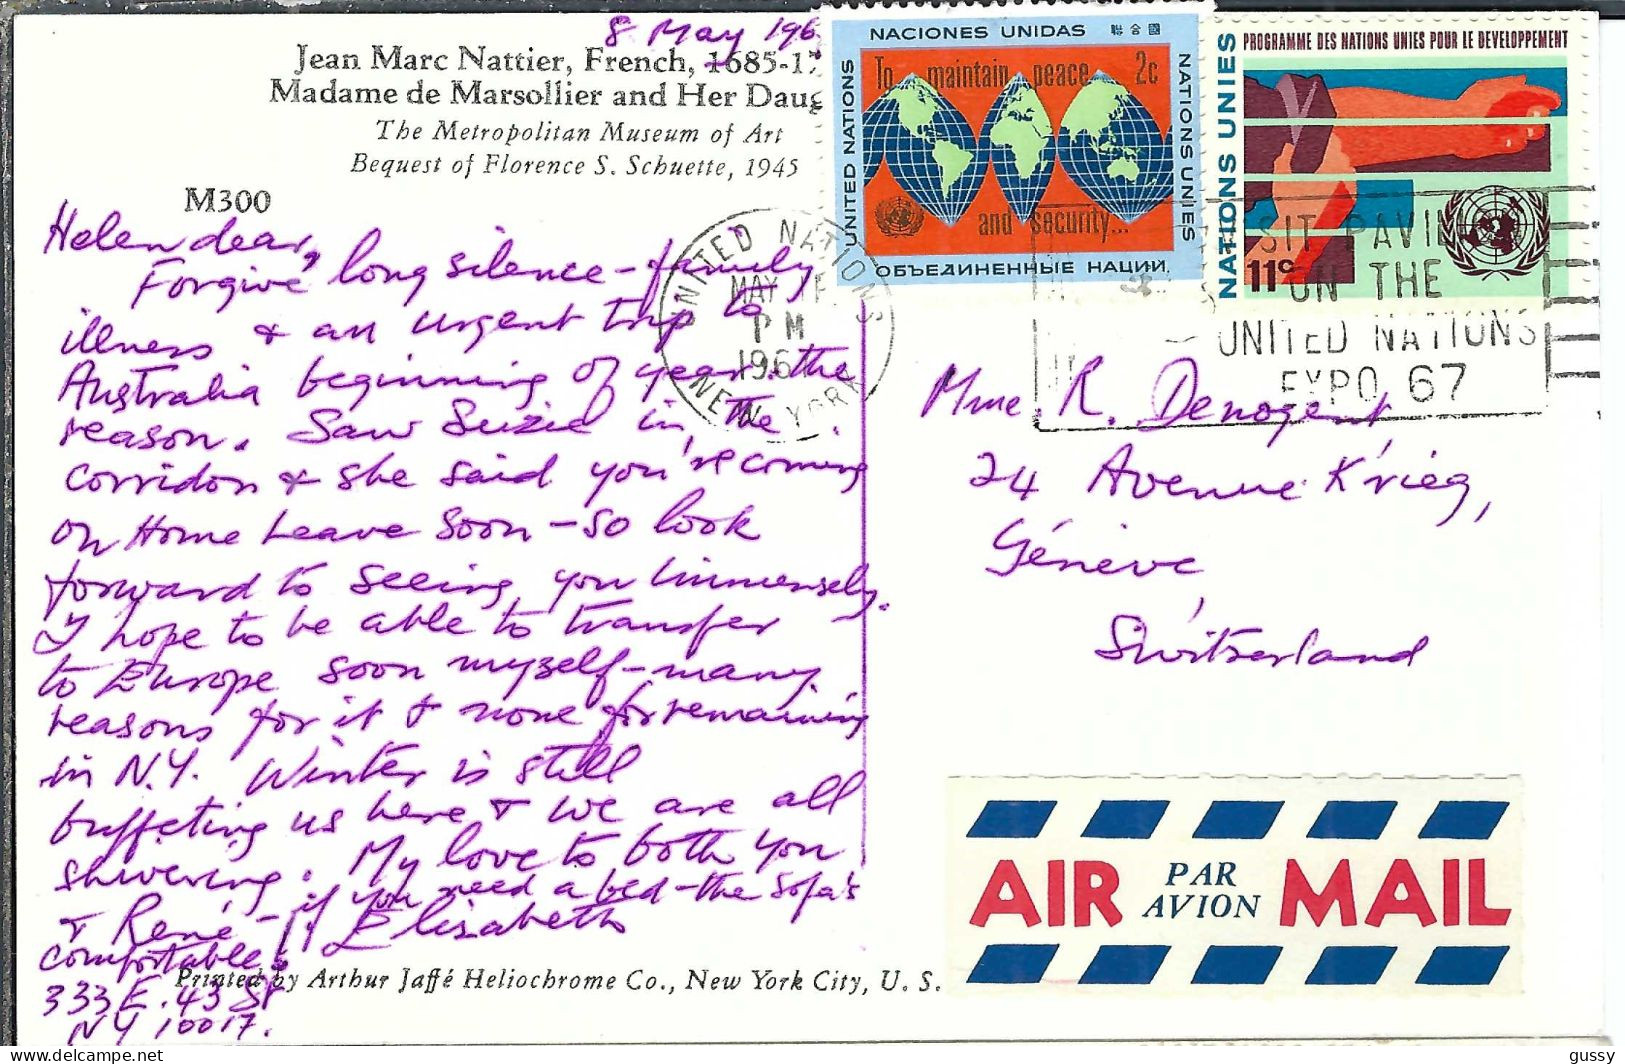 8 May 196
Jean Marc Nattier, French, 1685-17
Madame de Marsollier and Her Daug
The Metropolitan Museum of Art
Bequest of Florence S. Schuette, 1945
M300
Helen dear,
Forgive long silence - family
illness & an urgent trip to
Australia beginning of year the
reason. Saw Suzie in the
corridor & she said you're coming
on Home Leave soon - so look
forward to seeing you immensely.
I hope to be able to transfer
to Europe soon myself - many
reasons for it & none for remaining
in N.Y. Winter is still
buffeting us here & we are all
shivering. My love to both you
& René - if you need a bed - the sofa's
comfortable! Elisabeth
333 E. 43 St
NY 10017.
Printed by Arthur Jaffé Heliochrome Co., New York City, U. S.
NACIONES UNIDAS 聯合國
UNITED NATIONS
To maintain peace 2c
and security...
NATIONS UNIES
ОБЪЕДИНЕННЫЕ НАЦИИ
PROGRAMME DES NATIONS UNIES POUR LE DEVELOPPEMENT
NATIONS UNIES
11c
UNITED NATIONS
MAY
PM
196
NEW YORK
SIT PAVIL
ON THE
UNITED NATIONS
EXPO 67
Mme. R. Denogent
24 Avenue Krieg,
Génève
Switzerland
AIR PAR AVION MAIL
gussy